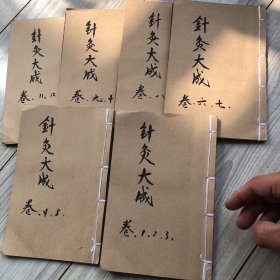 針灸大成
卷.11.12
針灸大成
卷.九.十
針灸大成
卷.八.
針灸大成
卷.六.七.
針灸大成
卷.4.5.
針灸大成
卷.1.2.3.